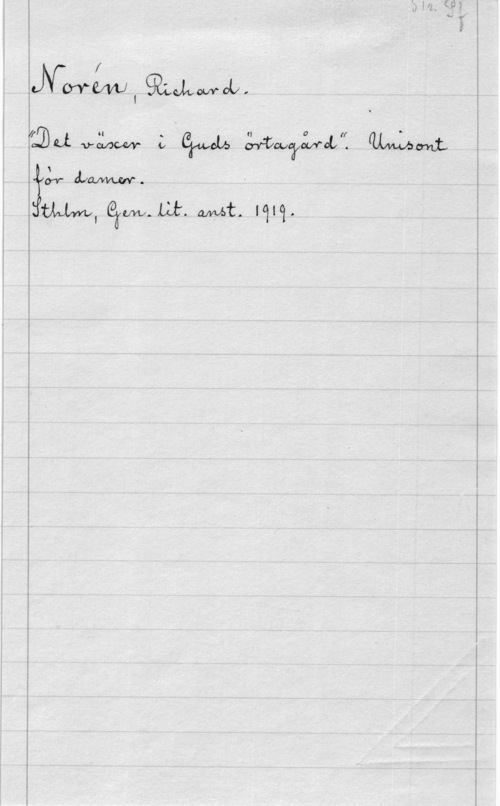 Norén, Richard.
"Det växer i Guds örtagård". Unisont
för damer.
Sthlm, Gen. lit. anst. 1919.